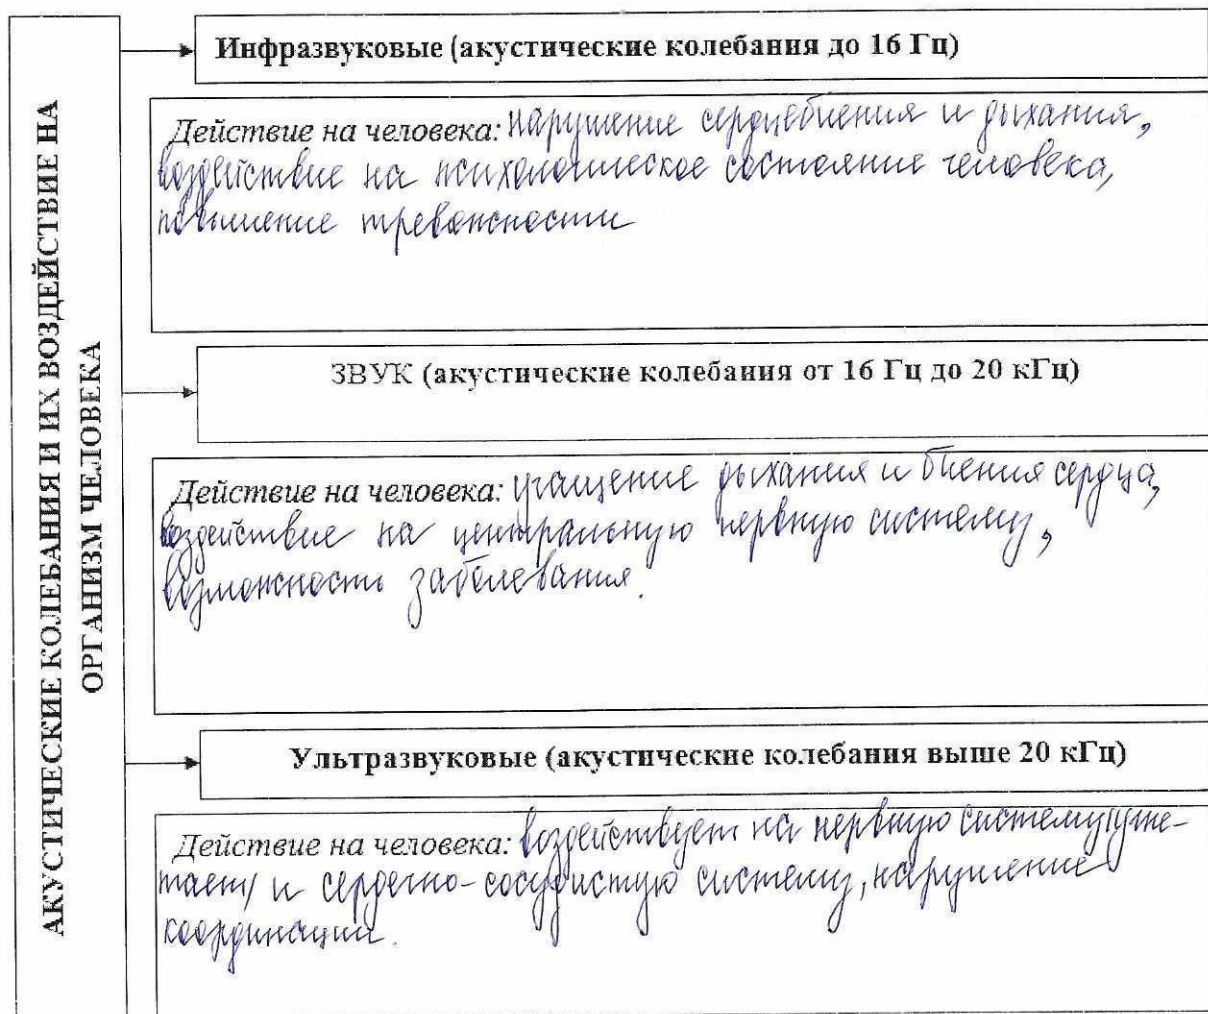 АКУСТИЧЕСКИЕ КОЛЕБАНИЯ И ИХ ВОЗДЕЙСТВИЕ НА
ОРГАНИЗМ ЧЕЛОВЕКА
Инфразвуковые (акустические колебания до 16 Гц)
Действие на человека: нарушение сердцебиения и дыхания,
воздействие на психологическое состояние человека,
повышение тревожности
ЗВУК (акустические колебания от 16 Гц до 20 кГц)
Действие на человека: учащение дыхания и биения сердца,
воздействие на центральную нервную систему,
возможности заболевания.
Ультразвуковые (акустические колебания выше 20 кГц)
Действие на человека: воздействует на нервную систему (угне-
тает) и сердечно-сосудистую систему, нарушение
координации.